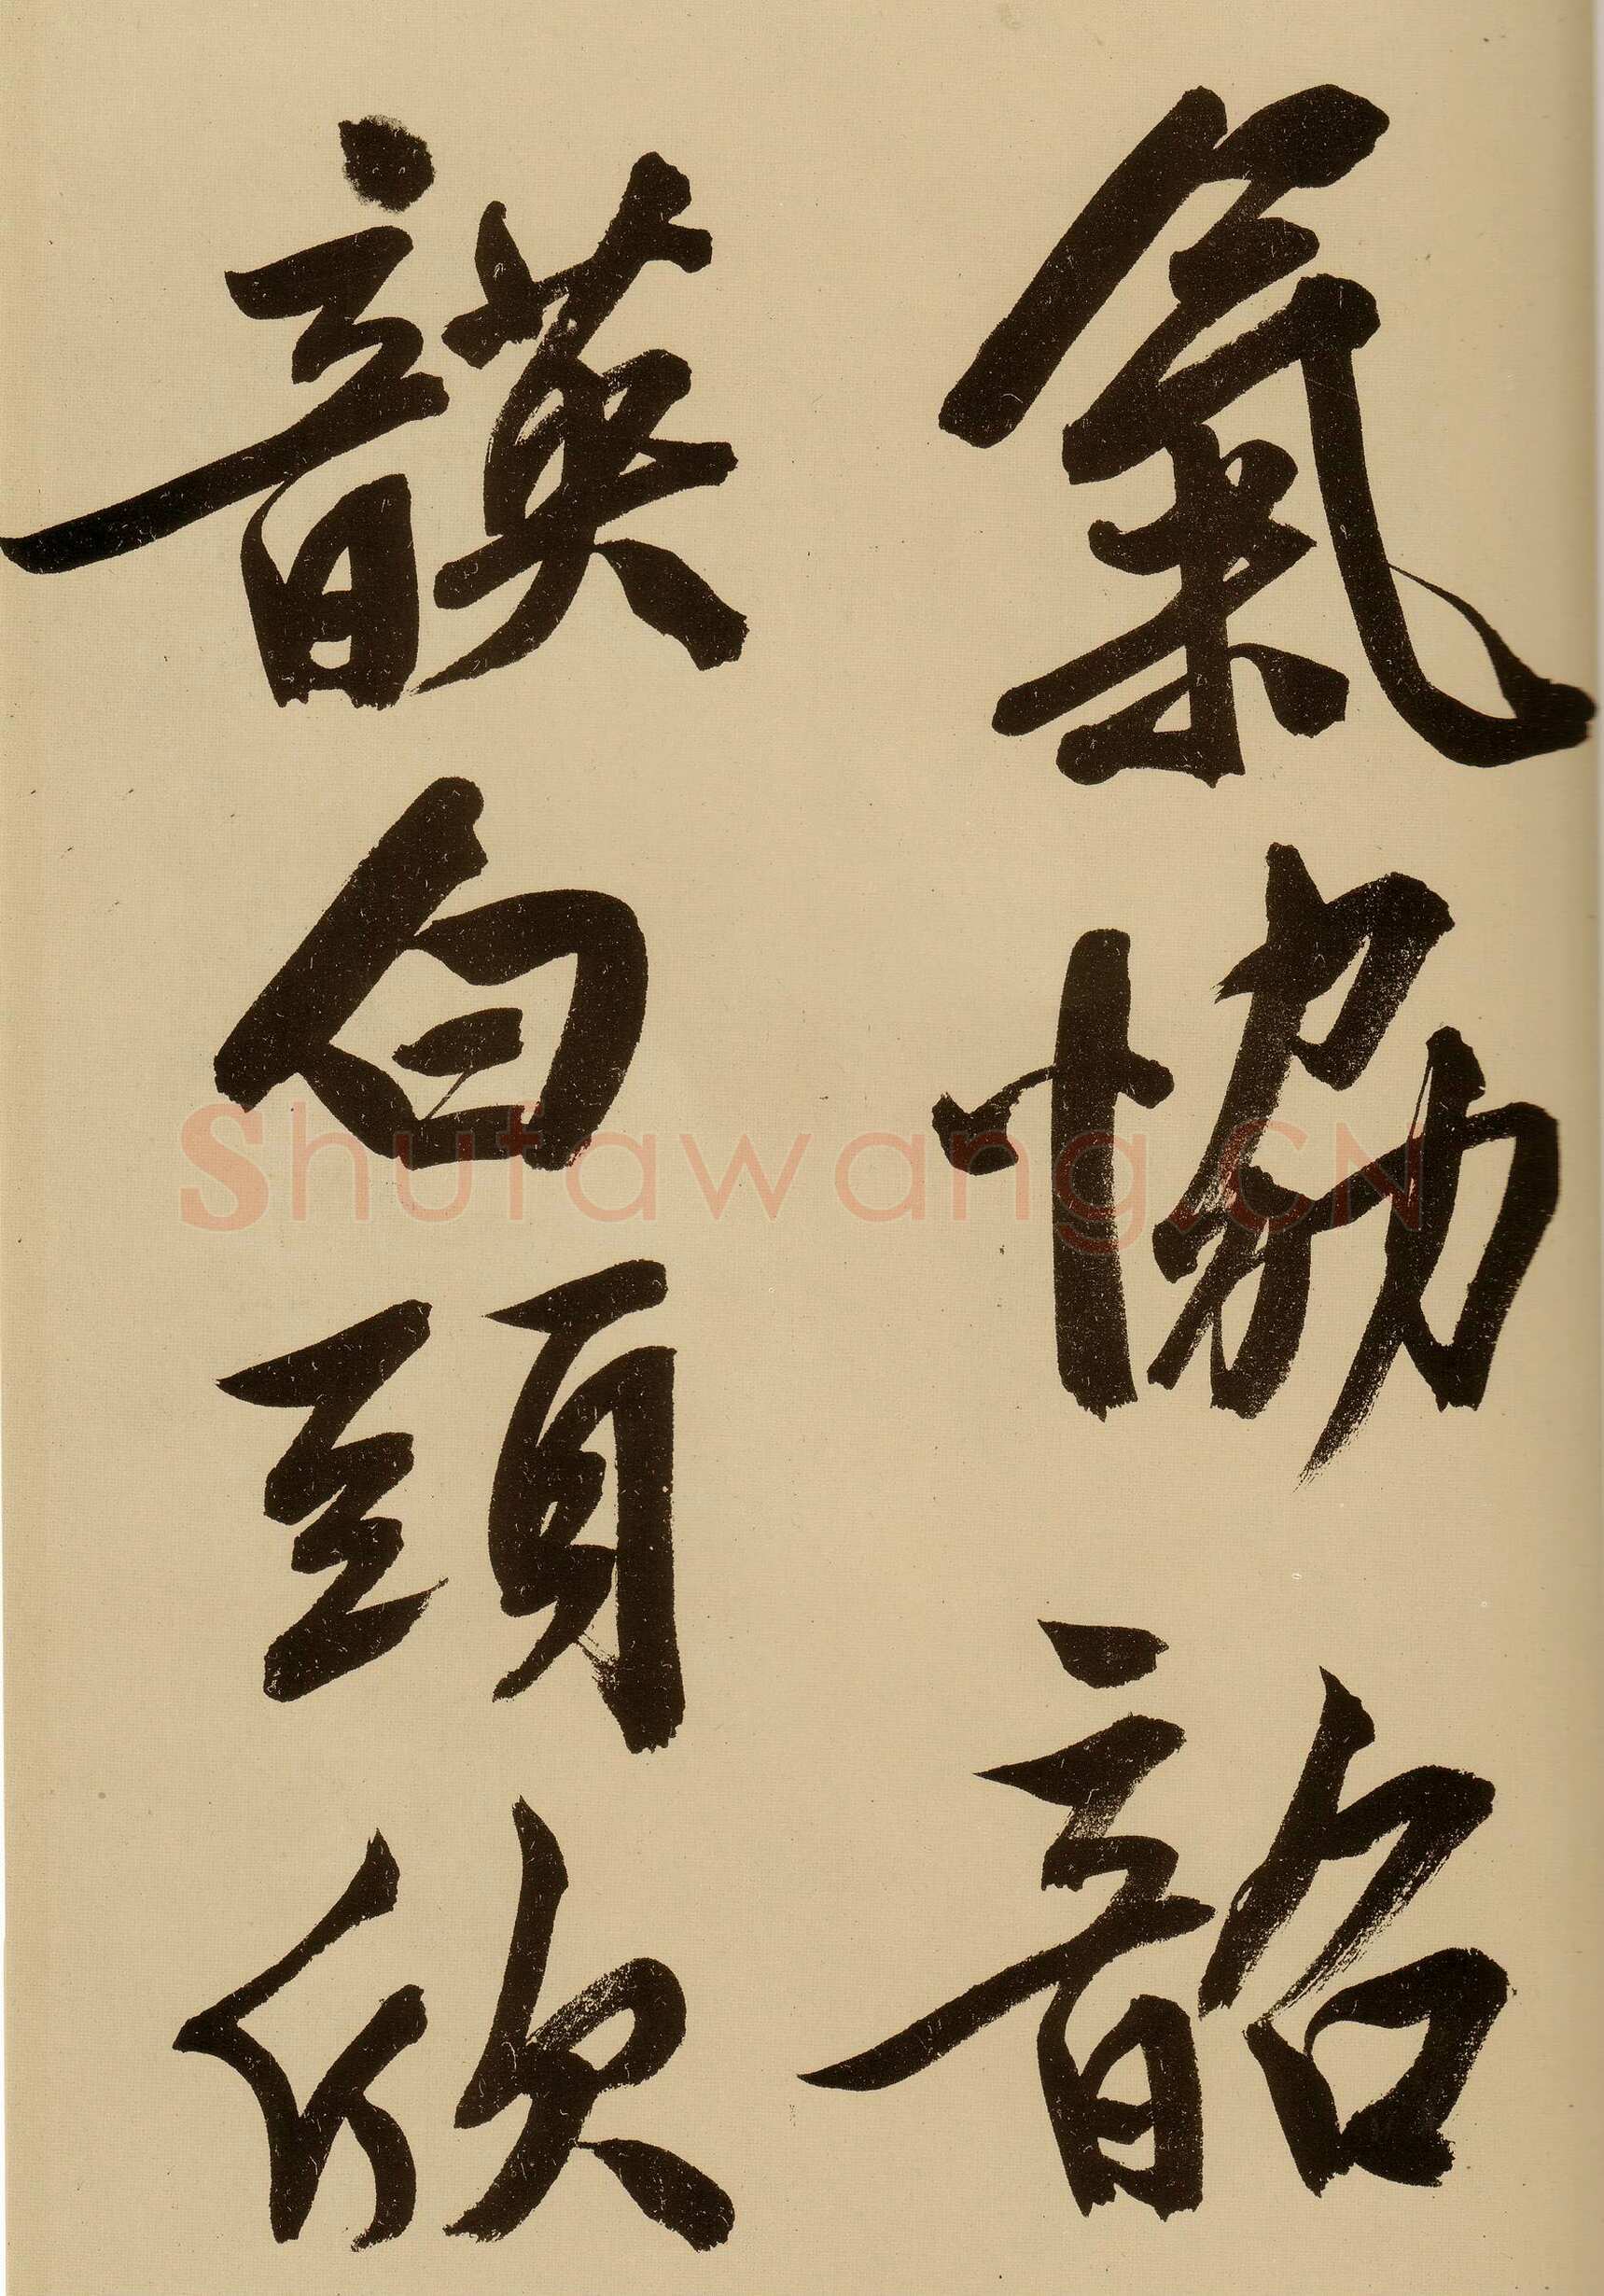 氣協韶
頀白頭欣
Shufawang.CN